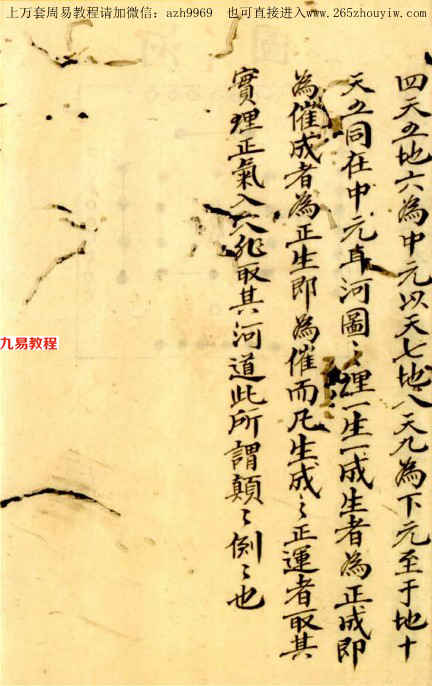 上万套周易教程请加微信：azh9969 也可直接进入www.265zhouyiw.com
四天五地六為中元以天七地八天九為下元至于地十
天五同在中元耳河圖之理一生一成生者為正成即
為催成者為正生即為催而凡生成之正運者取其
實理正氣入穴非取其河道此所謂顛〻倒〻也
九易教程